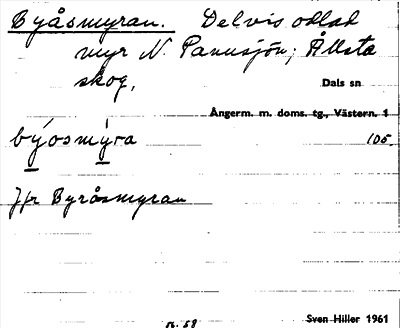 Byåsmyran. Delvis odlad
myr N. Panusjön; Ållsta
skog.
Dals sn
Ångerm. m. doms. tg., Västern. 1
býosmỳra 105.
Jfr Byråsmyran
n. 58 Sven Hiller 1961